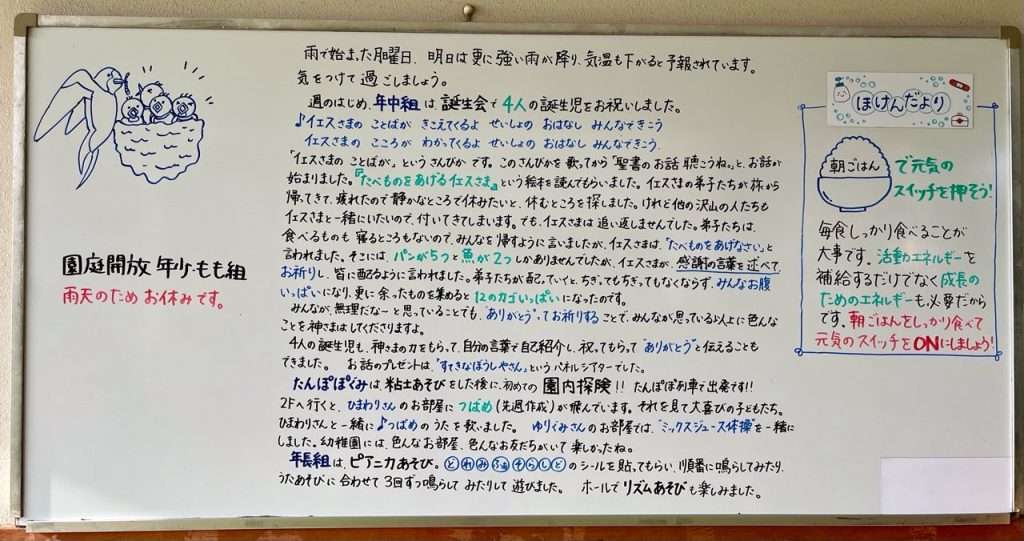 園庭開放 年少・もも組
雨天のため お休みです。
雨で始まった月曜日、明日は更に強い雨が降り、気温も下がると予報されています。
気をつけて過ごしましょう。
週のはじめ、年中組は、誕生会で4人の誕生児をお祝いしました。
♪イエスさまの ことばが きこえてくるよ せいしょの おはなし みんなできこう
イエスさまの こころが わかってくるよ せいしょの おはなし みんなできこう.
「イエスさまの ことばが」というさんびか です。このさんびかを歌ってから「聖書のお話 聴こうね。」と、お話が
始まりました。『たべものをあげるイエスさま』という絵本を読んでもらいました。イエスさまの弟子たちが旅から
帰ってきて、疲れたので静かなところで休みたいと、休むところを探しました。けれど他の沢山の人たちも
イエスさまと一緒にいたいので、付いてきてしまいます。でも、イエスさまは追い返しませんでした。弟子たちは、
食べるものも 寝るところもないので、みんなを帰すように言いましたが、イエスさまは、「たべものをあげなさい」と
言われました。そこには、パンが5つと魚が2つしかありませんでしたが、イエスさまが、感謝の言葉を述べて
お祈りし、皆に配るように言われました。弟子たちが配っていくと、ちぎってもちぎってもなくならず、みんなお腹
いっぱいになり、更に余ったものを集めると12のカゴいっぱいになったのです。
みんなが、無理だな〜と思っていることでも、"ありがとう"ってお祈りすることで、みんなが思っている以上に色んな
ことを神さまはしてくださりますよ。
4人の誕生児も、神さまの力をもらって、自分の言葉で自己紹介し、祝ってもらって"ありがとう"と伝えることも
できました。 お話のプレゼントは、"すてきなぼうしやさん"というパネルシアターでした。
たんぽぽくみは、粘土あそびをした後に、初めての 園内探険!! たんぽぽ列車で出発です!!
2Fへ行くと、ひまわりさんのお部屋に つばめ(先週作成)が飛んでいます。それを見て大喜びの子どもたち。
ひまわりさんと一緒に♪つばめのうたを歌いました。 ゆりぐみさんのお部屋では、"ミックスジュース体操"を一緒に
しました。幼稚園には、色んなお部屋、色んなお友だちがいて楽しかったね。
年長組は、ピアニカあそび。どれみふぁそらしどのシールを貼ってもらい、順番に鳴らしてみたり、
うたあそびに合わせて3回ずつ鳴らしてみたりして遊びました。 ホールでリズムあそびも楽しみました。
ほけんだより
朝ごはん
で元気の
スイッチを押そう!
毎食しっかり食べることが
大事です。活動エネルギーを
補給するだけでなく成長の
ためのエネルギーも必要だから
です。朝ごはんをしっかり食べて
元気のスイッチをONにしましょう!